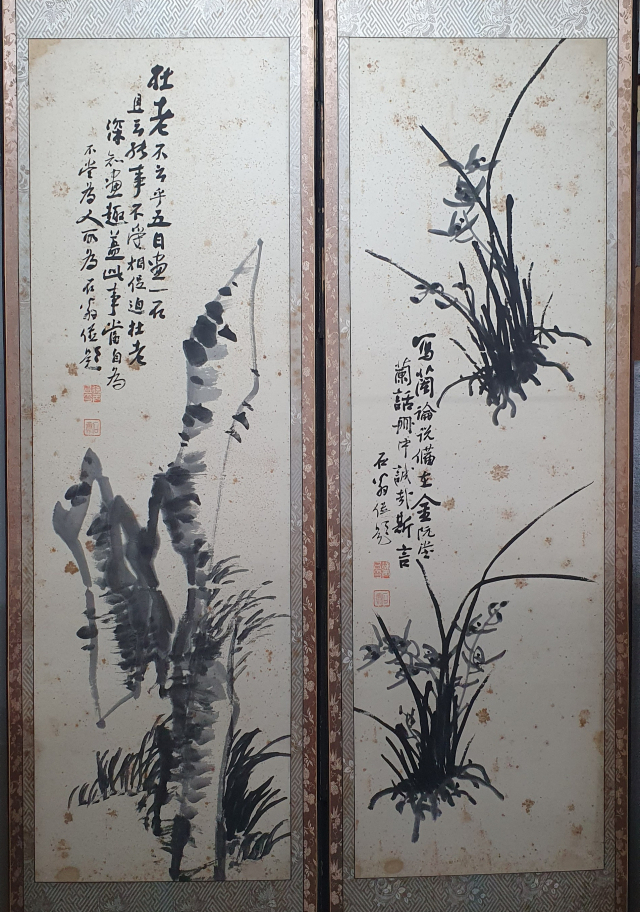 寫蘭論說備在金阮堂
蘭話冊中誠哉斯言
石翁題
杜老不云乎五日畫一石
且云能事不受相促迫杜老
深知畫趣蓋此事當自為
不當為人所為石翁題